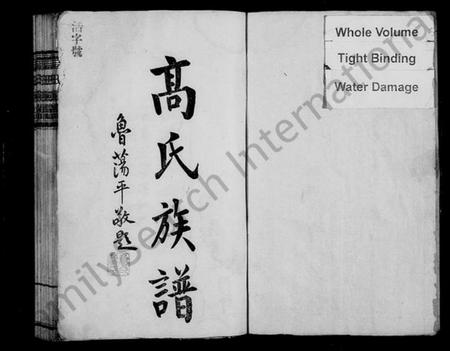 活字號
高氏族譜
魯蕩平敬題
Whole Volume
Tight Binding
Water Damage
FamilySearch International